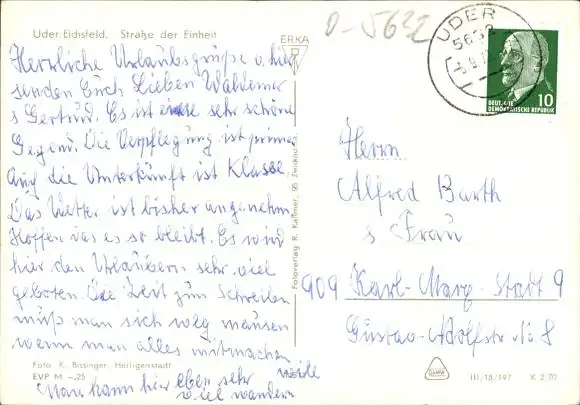 Uder Eichsfeld. Straße der Einheit
ERKA
D-5632
UDER
5632
DEUTSCHE
DEMOKRATISCHE REPUBLIK
10
Herrliche Urlaubsgrüße v. hier
senden Euch Lieben Waldemar
s Gertrud. Es ist eine sehr schöne
Gegend. Die Verpflegung ist prima
Auf die Unterkunft ist Klasse
Das Wetter ist bisher angenehm
Hoffen das es so bleibt. Es wird
hier den Urlaubern sehr viel
geboten. Die Zeit zum Schreiben
muß man sich weg mausen
wenn man alles mitmachen
will
Man kann hier eben sehr
viel wandern
Herrn
Alfred Barth
s Frau
909 Karl-Marx-Stadt 9
Gustav-Adolfstr № 8
Fotoverlag R. Kallmer, 95 Zwickau
Foto K. Bissinger, Heiligenstadt
EVP M –.25
III/18/197 K 2 70